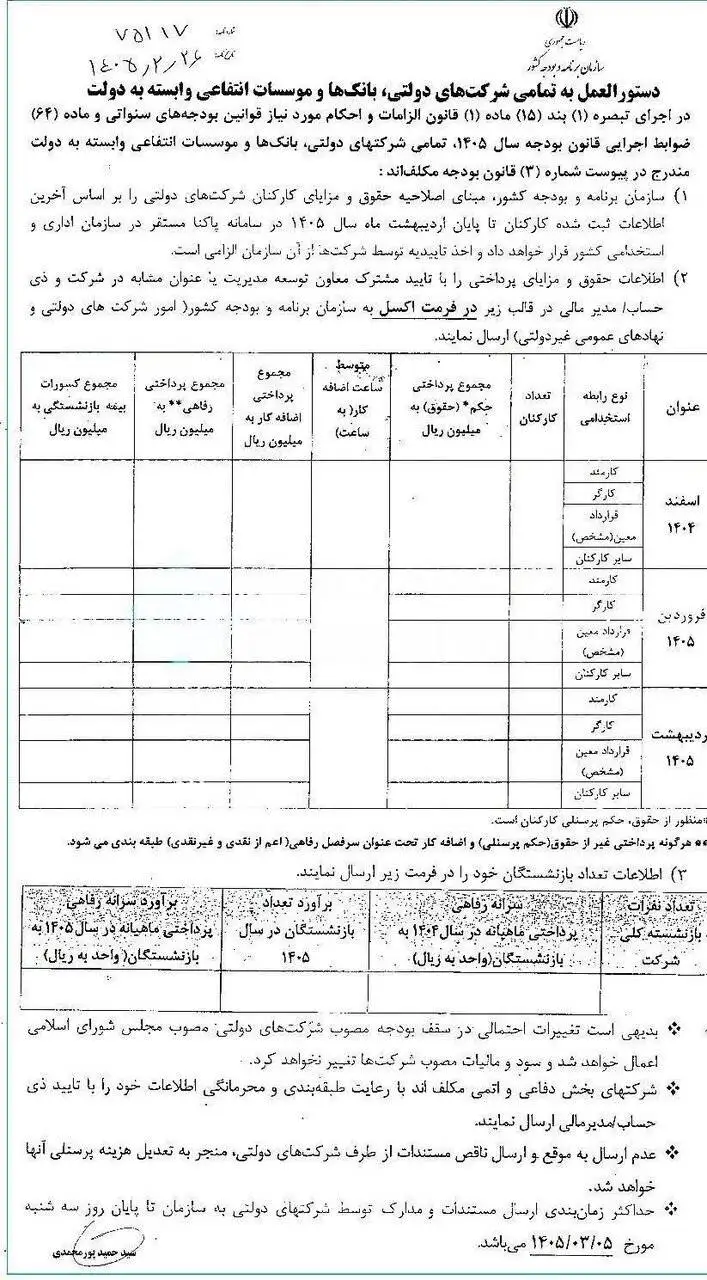 شماره نامه: ۷۵۱۱۷
تاریخ نامه: ۱۴۰۵/۲/۲۶
ریاست جمهوری
سازمان برنامه و بودجه کشور
دستورالعمل به تمامی شرکت‌های دولتی، بانک‌ها و موسسات انتفاعی وابسته به دولت
در اجرای تبصره (۱) بند (۱۵) ماده (۱) قانون الزامات و احکام مورد نیاز قوانین بودجه‌های سنواتی و ماده (۶۴)
ضوابط اجرایی قانون بودجه سال ۱۴۰۵، تمامی شرکتهای دولتی، بانک‌ها و موسسات انتفاعی وابسته به دولت
مندرج در پیوست شماره (۳) قانون بودجه مکلف‌اند:
۱) سازمان برنامه و بودجه کشور، مبنای اصلاحیه حقوق و مزایای کارکنان شرکت‌های دولتی را بر اساس آخرین
اطلاعات ثبت شده کارکنان تا پایان اردیبهشت ماه سال ۱۴۰۵ در سامانه پاکنا مستقر در سازمان اداری و
استخدامی کشور قرار خواهد داد و اخذ تاییدیه توسط شرکت‌ها از آن سازمان الزامی است.
۲) اطلاعات حقوق و مزایای پرداختی را با تایید مشترک معاون توسعه مدیریت یا عنوان مشابه در شرکت و ذی
حساب/ مدیر مالی در قالب زیر در فرمت اکسل به سازمان برنامه و بودجه کشور( امور شرکت های دولتی و
نهادهای عمومی غیردولتی) ارسال نمایند.
عنوان
نوع رابطه
استخدامی
تعداد
کارکنان
مجموع پرداختی
حکم* (حقوق) به
میلیون ریال
متوسط
ساعت اضافه
کار( به
ساعت)
مجموع
پرداختی
اضافه کار به
میلیون ریال
مجموع پرداختی
رفاهی** به
میلیون ریال
مجموع کسورات
بیمه بازنشستگی به
میلیون ریال
اسفند
۱۴۰۴
کارمند
کارگر
قرارداد
معین(مشخص)
سایر کارکنان
فروردین
۱۴۰۵
کارمند
کارگر
قرارداد معین
(مشخص)
سایر کارکنان
ردیبهشت
۱۴۰۵
کارمند
کارگر
قرارداد معین
(مشخص)
سایر کارکنان
*منظور از حقوق، حکم پرسنلی کارکنان است.
** هرگونه پرداختی غیر از حقوق(حکم پرسنلی) و اضافه کار تحت عنوان سرفصل رفاهی( اعم از نقدی و غیرنقدی) طبقه بندی می شود.
۳) اطلاعات تعداد بازنشستگان خود را در فرمت زیر ارسال نمایند.
تعداد نفرات
بازنشسته کلی
شرکت
سرانه رفاهی
پرداختی ماهیانه در سال ۱۴۰۴ به
بازنشستگان(واحد به ریال)
برآورد تعداد
بازنشستگان در سال
۱۴۰۵
برآورد سرانه رفاهی
پرداختی ماهیانه در سال ۱۴۰۵ به
بازنشستگان( واحد به ریال)
❖ بدیهی است تغییرات احتمالی در سقف بودجه مصوب شرکت‌های دولتی مصوب مجلس شورای اسلامی
اعمال خواهد شد و سود و مالیات مصوب شرکت‌ها تغییر نخواهد کرد.
❖ شرکتهای بخش دفاعی و اتمی مکلف اند با رعایت طبقه‌بندی و محرمانگی اطلاعات خود را با تایید ذی
حساب/مدیرمالی ارسال نمایند.
❖ عدم ارسال به موقع و ارسال ناقص مستندات از طرف شرکت‌های دولتی، منجر به تعدیل هزینه پرسنلی آنها
خواهد شد.
❖ حداکثر زمان‌بندی ارسال مستندات و مدارک توسط شرکتهای دولتی به سازمان تا پایان روز سه شنبه
مورخ ۱۴۰۵/۰۳/۰۵ می‌باشد.
سید حمید پورمحمدی